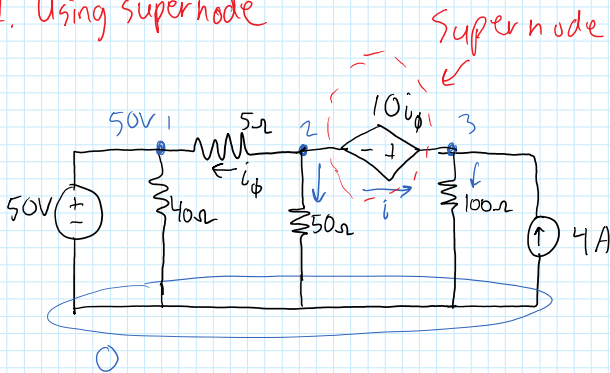 1. Using supernode
Supernode
50V 1
5Ω
2
10iϕ
3
- +
iϕ
i
50V
+
-
40Ω
50Ω
100Ω
4A
0